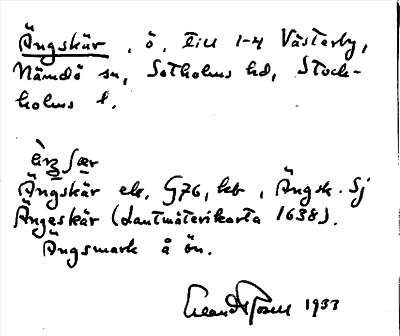 Ängskär, ö, till 1-4 Västerby,
Nämdö sn, Sotholms hd, Stock-
holms l.
Ängskär ek, G76, hkb, Ängsk. Sj
Ängeskär (Lantmäterikarta 1638).
Ängsmark å ön.
1933